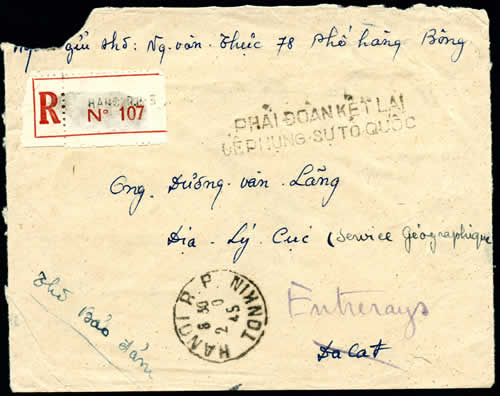 gửi thơ: Ng. văn. Thục 78 phố hàng Bông
R HANOI R.P
N° 107
PHẢI ĐOÀN KẾT LẠI
ĐỂ PHỤNG-SỰ TỔ QUỐC
Ong. Dương. văn. Lãng
Địa. Lý. Cục (Service Géographique
Thơ Bảo đảm
HANOI R.P. TONKIN
8 30
2 0
45
Entrerays
DaLat